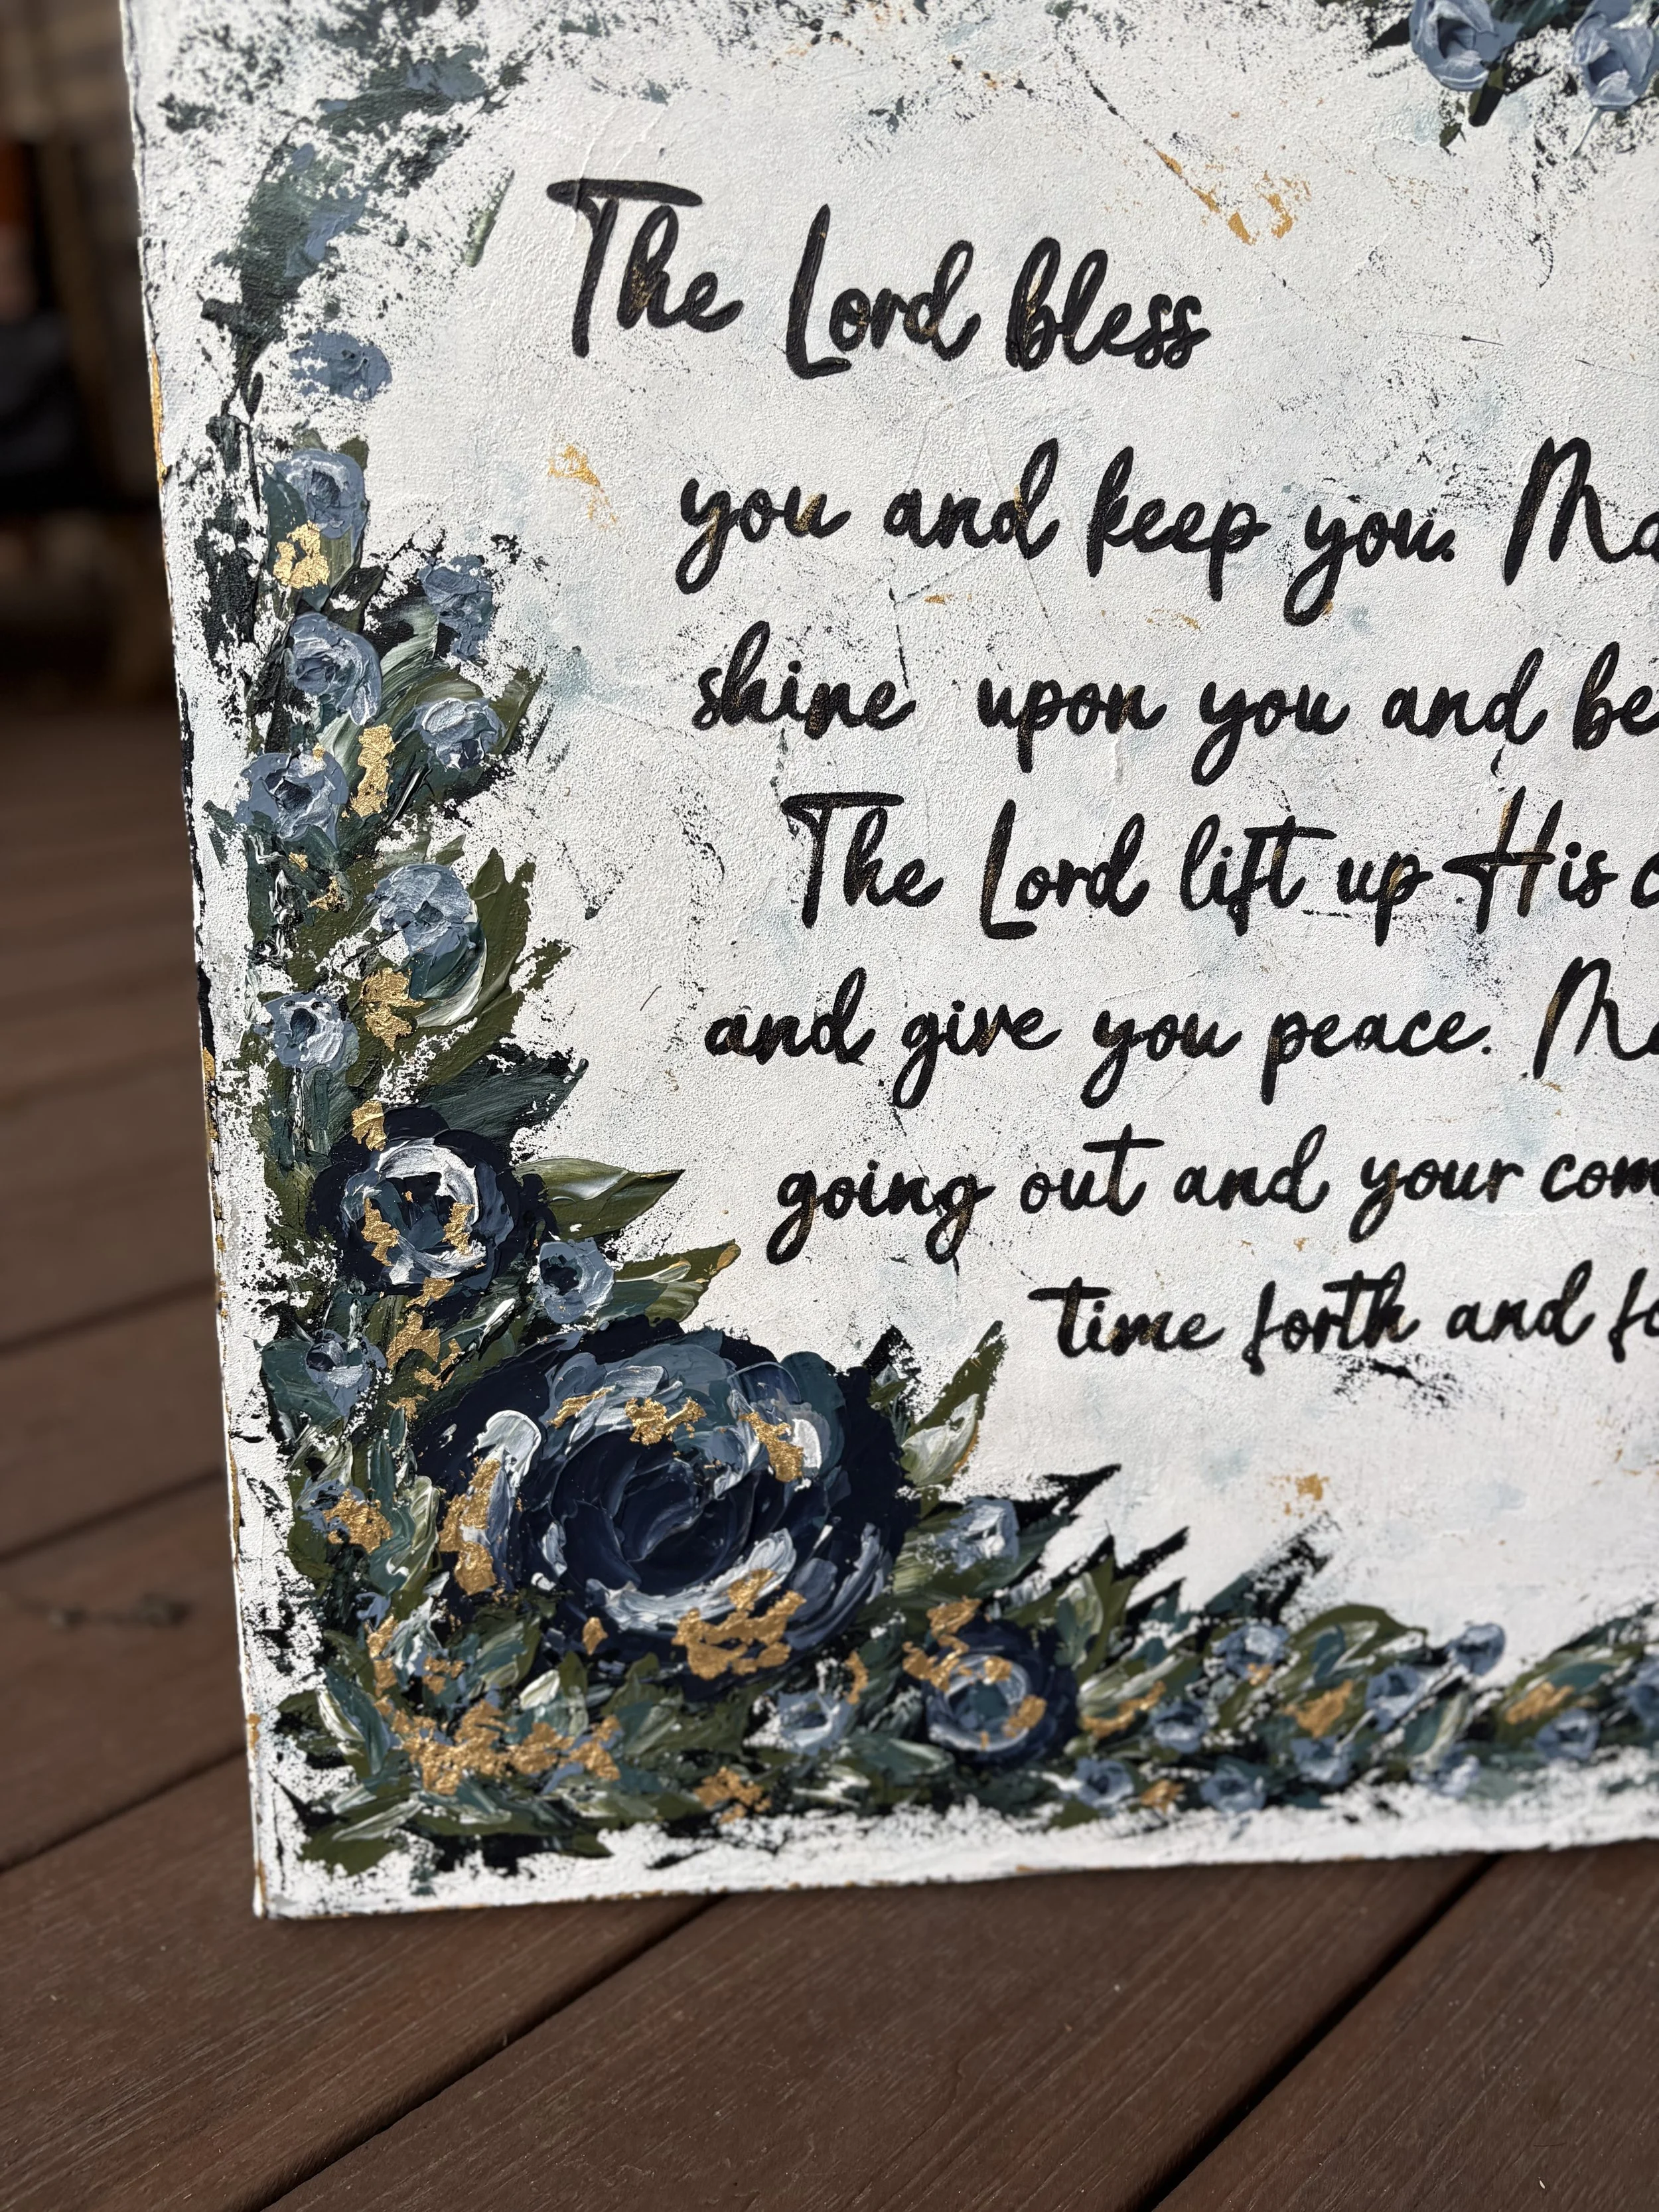 The Lord bless
you and keep you. Ma
shine upon you and be
The Lord lift up His c
and give you peace. Ma
going out and your com
time forth and fo